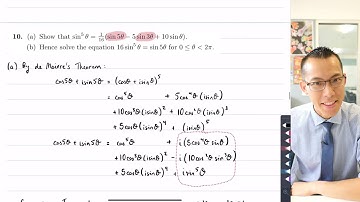 10. (a) Show that sin⁵ θ = 1/16 (sin 5θ − 5 sin 3θ + 10 sin θ).
(b) Hence solve the equation 16 sin⁵ θ = sin 5θ for 0 ≤ θ < 2π.
(a) By de Moivre's Theorem:
cos5θ + isin5θ = (cosθ + isinθ)⁵
= cos⁵θ + 5cos⁴θ (isinθ)
+10cos³θ(isinθ)² + 10cos²θ(isinθ)³
+ 5cosθ(isinθ)⁴ + (isinθ)⁵
cos5θ + isin5θ = cos⁵θ + i(5cos⁴θ sinθ)
+10cos³θ(isinθ)² − i(10cos²θ sin³θ)
+ 5cosθ(isinθ)⁴ + isin⁵θ